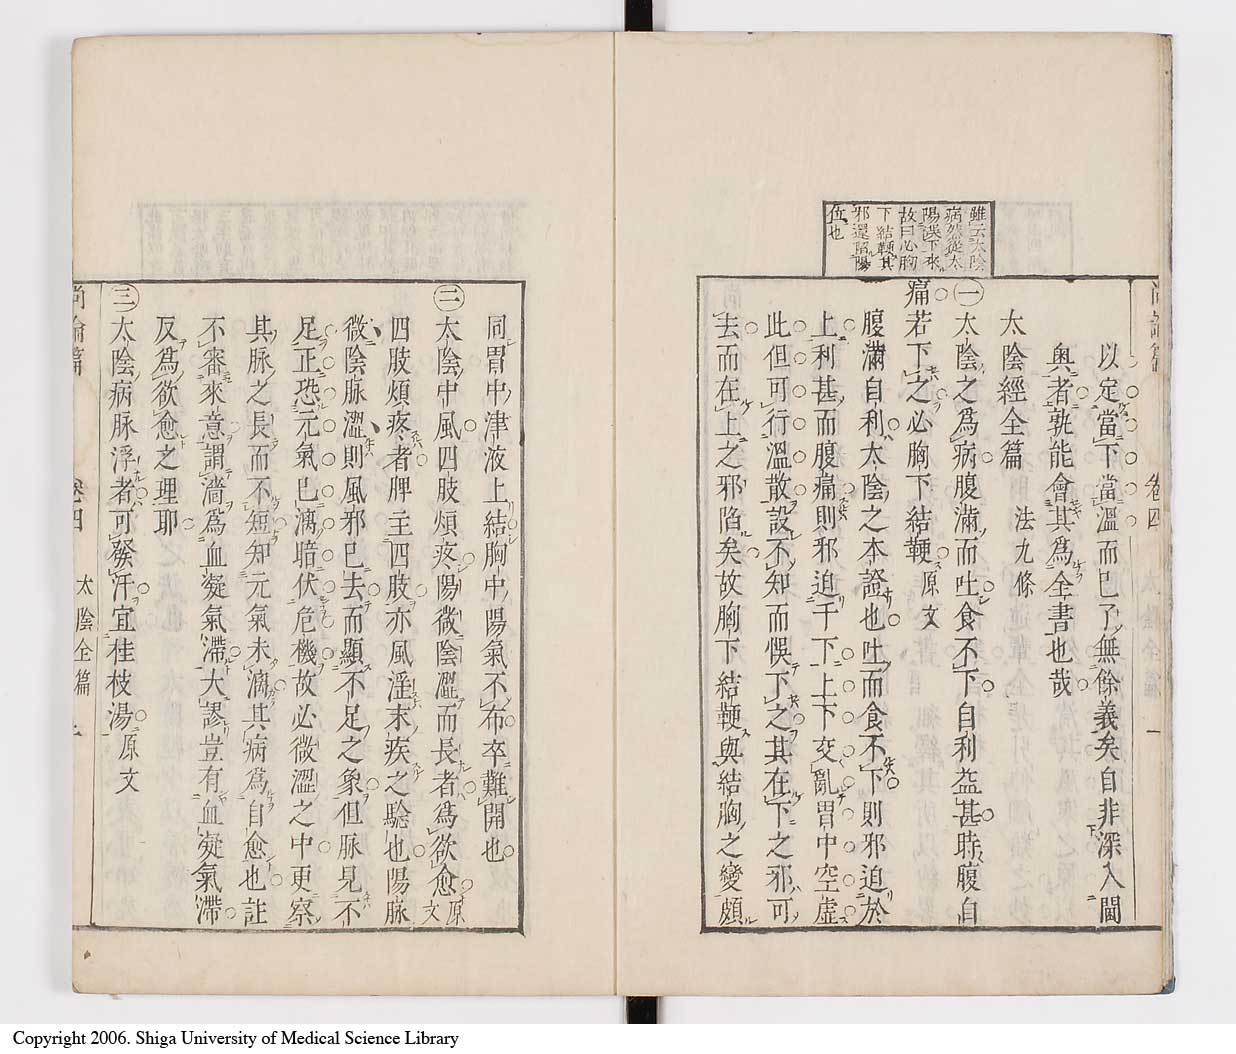 尚論篇 卷四 太陰全篇 一
以定當下當溫而已了無餘義矣自非深入閫
奥者孰能會其爲全書也哉
太陰經全篇 法九條
雖云太陰
病然從太
陽誤下來
故曰必胸
下結鞕其
邪還陷陽
位也
㊀太陰之爲病腹滿而吐食不下自利益甚時腹自
痛若下之必胸下結鞕原文
腹滿自利太陰之本證也吐而食不下則邪迫於
上利甚而腹痛則邪迫于下上下交亂胃中空虛
此但可行溫散設不知而悞下之其在下之邪可
去而在上之邪陷矣故胸下結鞕與結胸之變頗
同胃中津液上結胸中陽氣不布卒難開也
㊁太陰中風四肢煩疼陽微陰澀而長者爲欲愈原文
四肢煩疼者脾主四肢亦風淫末疾之驗也陽脉
微陰脉澀則風邪已去而顯不足之象但脉見不
足正恐元氣已漓暗伏危機故必微澀之中更察
其脉之長而不短知元氣未漓其病爲自愈也註
不審來意謂濇爲血凝氣滯大謬豈有血凝氣滯
反爲欲愈之理耶
㊂太陰病脉浮者可發汗宜桂枝湯原文
尚論篇 卷四 太陰全篇 二
Copyright 2006. Shiga University of Medical Science Library